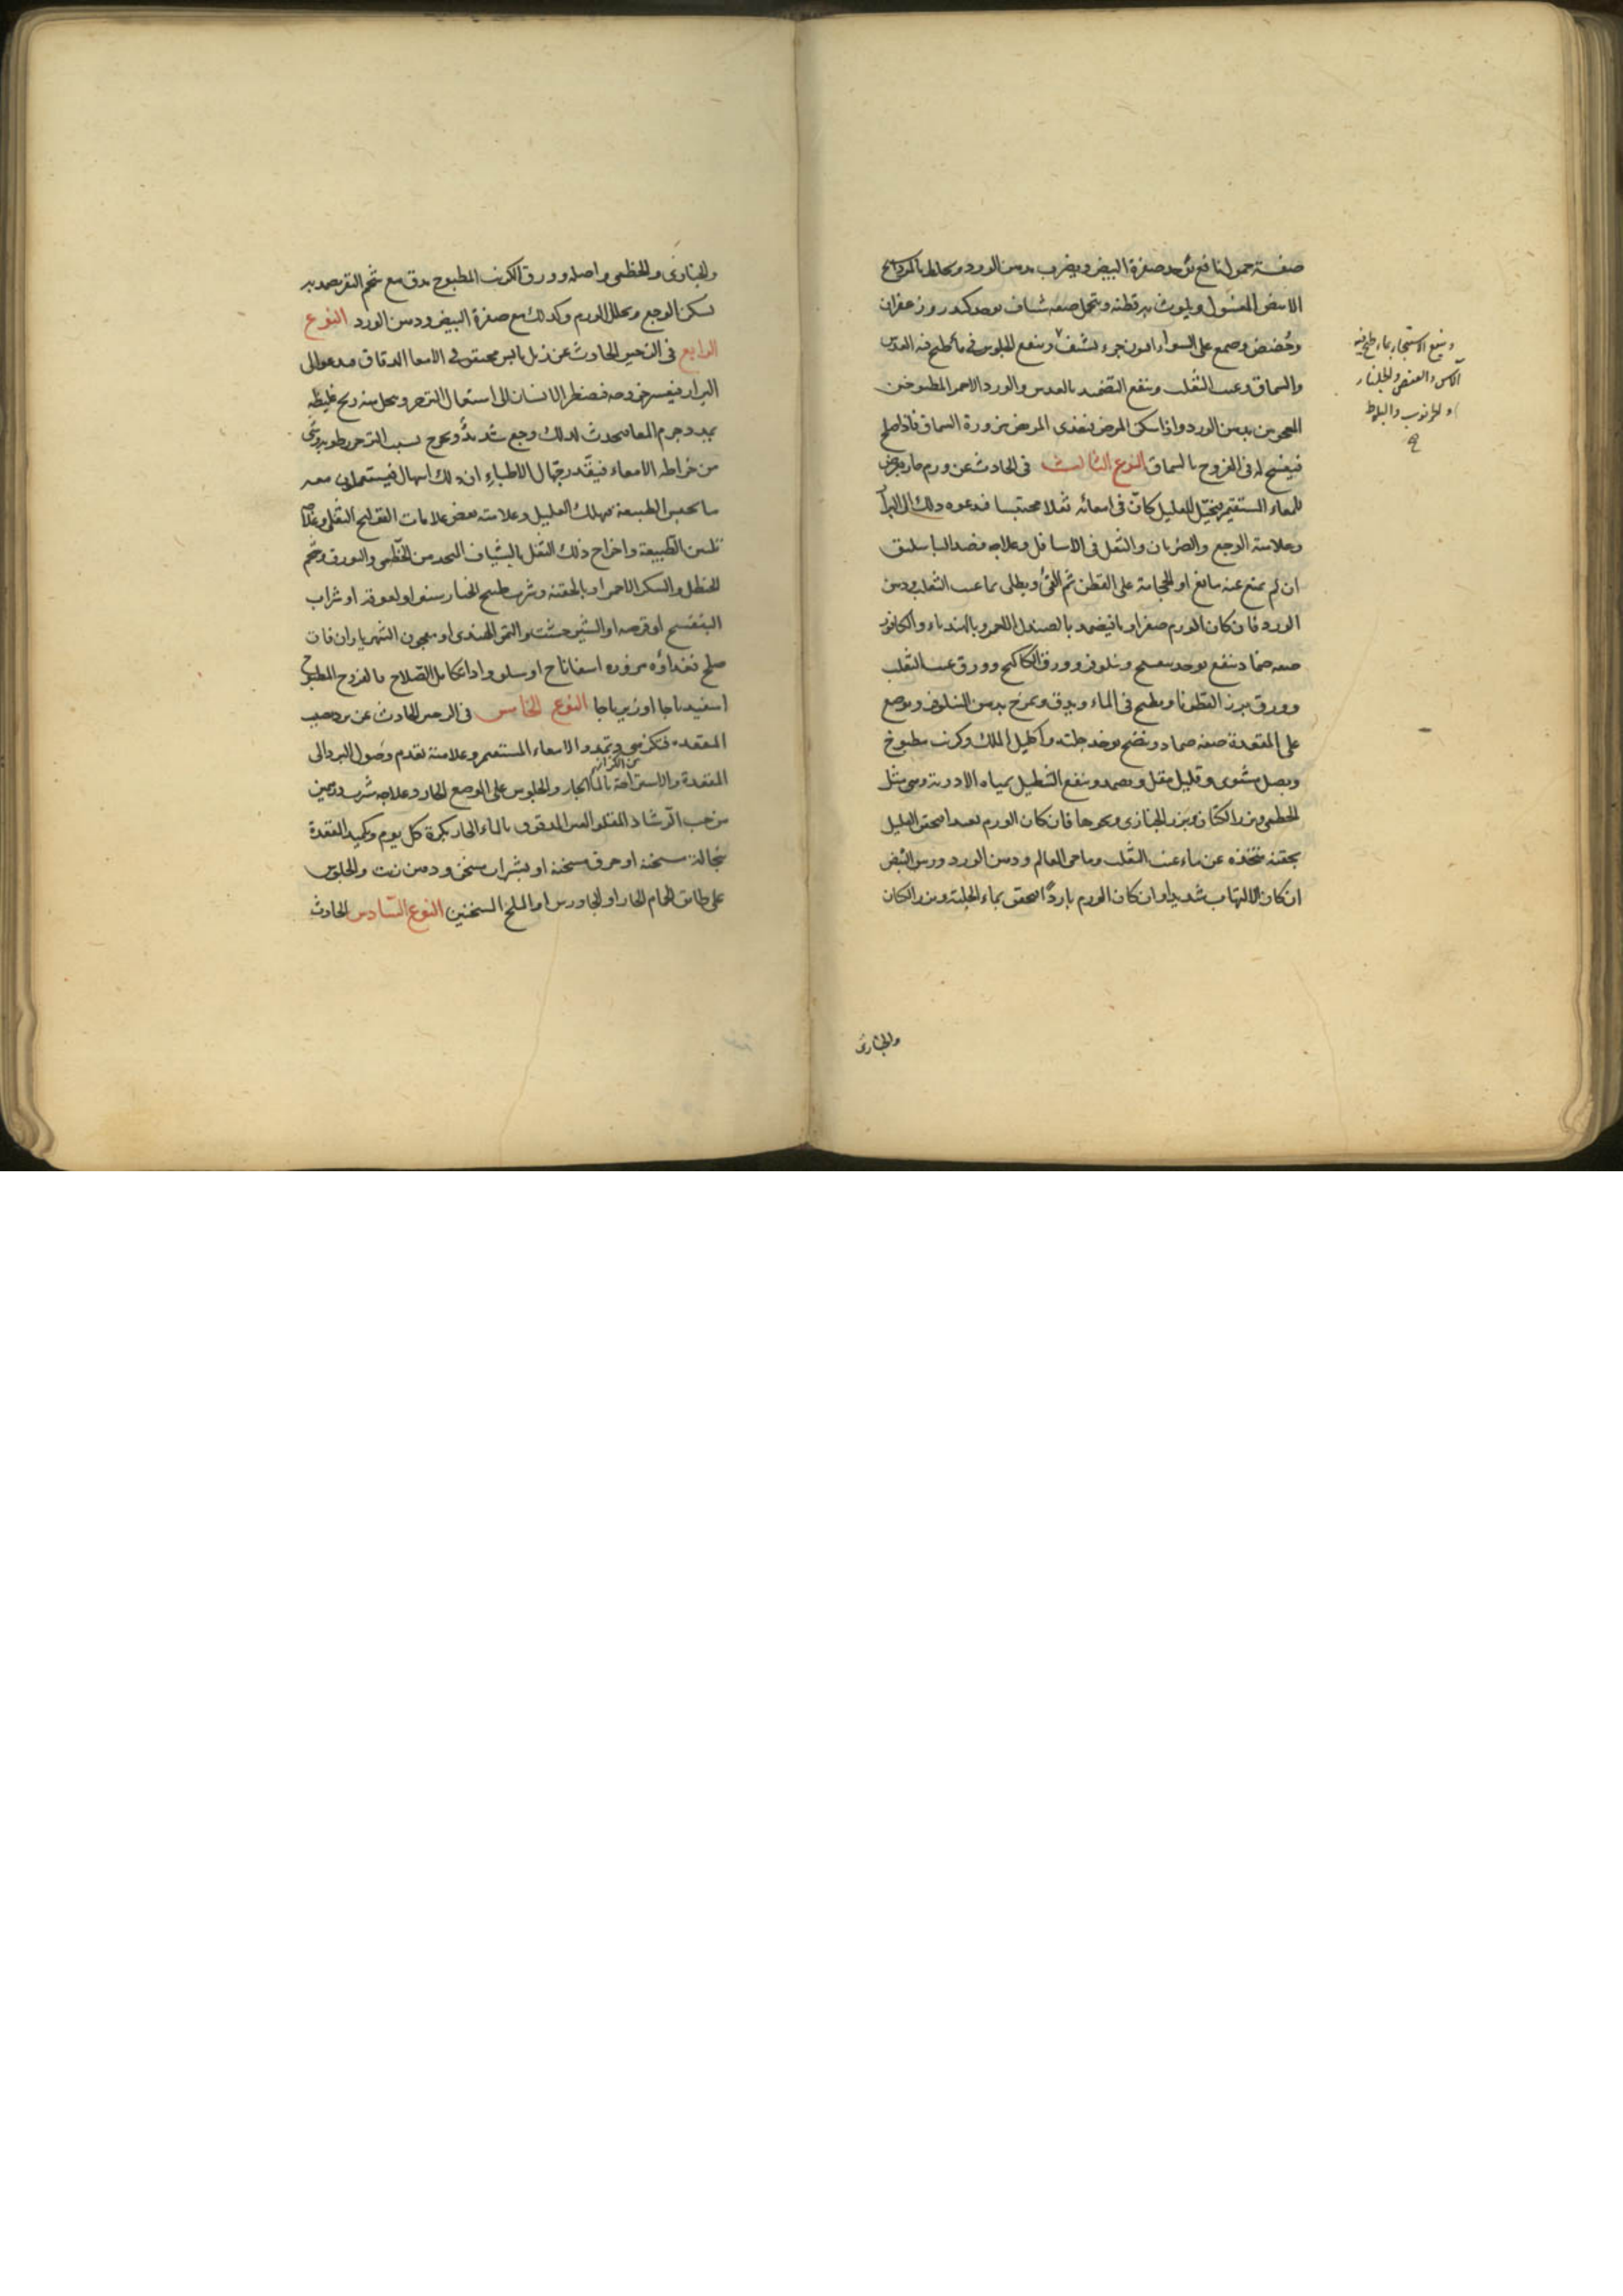 صفة حمول نافع تؤخذ صفرة البيض ويضرب بدهن الورد ويخلط بالمرداسنج
الابيض المغسول ويلوث به قطنة ويتحمل صفة شياف يوخذ كندر وزعفران
وحضض وصمغ على السواء افيون جزء يشيف وينفع الجلوس في ماء طبخ فيه العدس
والسماق وعنب الثعلب وينفع التضميد بالعدس والورد الاحمر المطبوخين
المعجونين بدهن الورد واذا سكن المرض فغذي المريض بمزورة السماق فاذا صلح
فيفسح له في الفروج بالسماق النوع الثالث في الحادث عن ورم حار يعرض
للمعاء المستقيم فيتخيل للعليل كان في امعائه ثفلا محتبسا فيدعوه ذلك الى البراز
وعلامته الوجع والضربان والثقل في الاسافل وعلاجه فصد الباسليق
ان لم يمنع عنه مانع او الحجامة على القطن ثم القئ ويطلى بماء عنب الثعلب ودهن
الورد فان كان الورم صفراويا فيضمد بالصندل الاحمر وبالهندباء والكافور
صفة ضماد ينفع يوخذ بنفسج ونيلوفر وورق الكاكنج وورق عنب الثعلب
وورق بزر القطونا ويطبخ في الماء ويدق ويمرخ بدهن النيلوفر ويوضع
على المقعدة صفة ضماد ينضج يوخذ حلبة واكليل الملك وكرنب مطبوخ
وبصل مشوى وقليل مقل ويضمد وينفع التنطيل بمياه الادوية وهي مثل
الخطمى وبزر الكتان وبزر الخبازى ونحوها فان كان الورم بعيدا احتقن العليل
بحقنة متخذة عن ماء عنب الثعلب وماء حى العالم ودهن الورد وبياض البيض
ان كان الالتهاب شديدا وان كان الورم باردا احتقن بماء الحلبة وبزر الكتان
والخبازى
وينفع الاستنجاء بماء طبخ فيه
الآس والعفص والجلنار
والخرنوب والبلوط
صح
والخبازى والخطمى واصله وورق الكرنب المطبوخ يدق مع شحم البقر يضمد به
يسكن الوجع ويحلل الورم وكذلك مع صفرة البيض ودهن الورد النوع
الرابع في الزحير الحادث عن زبل يابس محتقن في الامعا الدقاق فيدعو الى
البراز فيعسر خروجه فيضطر الانسان الى استعمال التزحر وينحل منه ريح غليظة
يمدد جرم المعا فيحدث لذلك وجع شديد ويخرج بسبب التزحر رطوبة وشئ
من خراطة الامعاء فيقدر جهال الاطباء ان ذلك اسهال فيستعملون معه
ما يحبس الطبيعة فيهلك العليل وعلامته بعض علامات القولنج الثفلى وعلاجه
تليين الطبيعة واخراج ذلك الثفل بالشياف المتخذ من الخطمى والبورق وشحم
الحنظل والسكر الاحمر او بالحقنة وشرب طبيخ الخيار شنبر او لعوقه او شراب
البنفسج او قرصه او الشيرخشت والتمر الهندى او معجون الشهرياران فان
صلح فغذاؤه مزورة اسفاناخ او سلق واذا تكامل الصلاح فالفروج المطبوخ
اسفيدباجا او زيرباجا النوع الخامس في الزحير الحادث عن برد يصيب
المقعدة فتكزز وتمدد الامعاء المستقيم وعلامته تقدم وصول البرد الى
من الكزاز
المقعدة والاستراحة بالماء الحار والجلوس على الموضع الحار وعلاجه شرب درهمين
من حب الرشاد المقلو الغير المدقوق بالماء الحار بكرة كل يوم وتكميد المقعدة
بنخالة مسخنة او خرق مسخنة او بشراب مسخن ودهن زيت والجلوس
على طابق الحمام الحار او الجاورس او الملح المسخنين النوع السادس الحادث